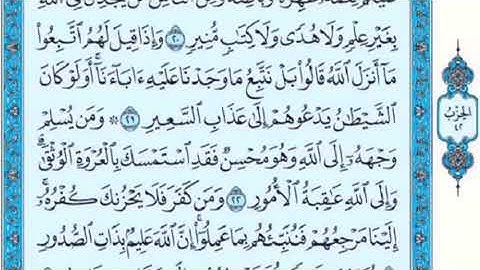 عَلَيْكُمْ نِعَمَهُ ظَٰهِرَةً وَبَاطِنَةً وَمِنَ ٱلنَّاسِ مَن يُجَٰدِلُ فِي ٱللَّهِ
بِغَيْرِ عِلْمٍ وَلَا هُدًى وَلَا كِتَٰبٍ مُّنِيرٍ ٢٠ وَإِذَا قِيلَ لَهُمُ ٱتَّبِعُوا۟
مَآ أَنزَلَ ٱللَّهُ قَالُوا۟ بَلْ نَتَّبِعُ مَا وَجَدْنَا عَلَيْهِ ءَابَآءَنَآ أَوَلَوْ كَانَ
ٱلشَّيْطَٰنُ يَدْعُوهُمْ إِلَىٰ عَذَابِ ٱلسَّعِيرِ ٢١ ۞ وَمَن يُسْلِمْ
وَجْهَهُۥٓ إِلَى ٱللَّهِ وَهُوَ مُحْسِنٌ فَقَدِ ٱسْتَمْسَكَ بِٱلْعُرْوَةِ ٱلْوُثْقَىٰ
وَإِلَى ٱللَّهِ عَٰقِبَةُ ٱلْأُمُورِ ٢٢ وَمَن كَفَرَ فَلَا يَحْزُنكَ كُفْرُهُۥٓ
إِلَيْنَا مَرْجِعُهُمْ فَنُنَبِّئُهُم بِمَا عَمِلُوٓا۟ إِنَّ ٱللَّهَ عَلِيمٌۢ بِذَاتِ ٱلصُّدُورِ
الحِزْبُ
٤٢